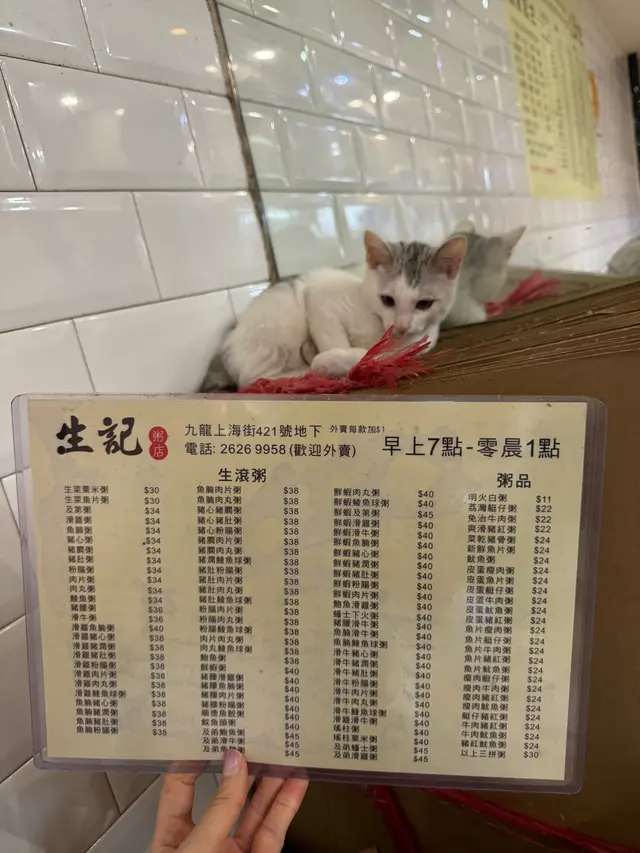 生記
粥店
九龍上海街421號地下 外賣每款加$1
電話: 2626 9958 (歡迎外賣)
早上7點-零晨1點
生滾粥
生菜粟米粥 $30
生菜魚片粥 $30
及第粥 $34
滑雞粥 $34
魚腩粥 $34
豬心粥 $34
豬膶粥 $34
豬肚粥 $34
粉腸粥 $34
肉片粥 $34
肉丸粥 $34
鯪魚粥 $34
豬腰粥 $36
滑牛粥 $36
滑雞魚腩粥 $40
滑雞豬心粥 $38
滑雞豬膶粥 $38
滑雞豬肚粥 $38
滑雞粉腸粥 $38
滑雞肉片粥 $38
滑雞肉丸粥 $38
滑雞鯪魚球粥 $38
魚腩豬心粥 $38
魚腩豬膶粥 $38
魚腩豬肚粥 $38
魚腩粉腸粥 $38
魚腩肉片粥 $38
魚腩肉丸粥 $38
豬心豬膶粥 $38
豬心豬肚粥 $38
豬心粉腸粥 $38
豬膶肉片粥 $38
豬膶肉丸粥 $38
豬膶鯪魚球粥 $38
豬肚粉腸粥 $38
豬肚肉片粥 $38
豬肚肉丸粥 $38
豬肚鯪魚球粥 $38
粉腸肉片粥 $38
粉腸肉丸粥 $38
粉腸鯪魚球粥 $38
肉片肉丸粥 $38
肉丸鯪魚球粥 $38
鮑魚粥 $38
鮮蝦粥 $40
豬腰滑雞粥 $40
豬腰魚腩粥 $40
豬腰肉片粥 $40
豬腰肉丸粥 $40
順德魚骰粥 $40
鮫魚腸粥 $40
及弟鮑魚粥 $45
及弟滑牛粥 $45
及弟魚腩粥 $45
鮮蝦肉丸粥 $40
鮮蝦鯪魚球粥 $40
鮮蝦及弟粥 $45
鮮蝦滑雞粥 $40
鮮蝦滑牛粥 $40
鮮蝦魚腩粥 $40
鮮蝦豬心粥 $40
鮮蝦豬膶粥 $40
鮮蝦豬肚粥 $40
鮮蝦粉腸粥 $40
鮮蝦肉片粥 $40
鮑魚滑雞粥 $40
蠔士下火粥 $40
豬腰滑牛粥 $40
魚腩滑牛粥 $40
魚腩鯪魚球粥 $40
滑牛豬心粥 $40
滑牛豬膶粥 $40
滑牛豬肚粥 $40
滑牛粉腸粥 $40
滑牛肉片粥 $40
滑牛肉丸粥 $40
滑牛鯪魚球粥 $40
滑雞滑牛粥 $40
瑤柱粥 $40
瑤柱粟米粥 $45
及弟蠔士粥 $45
及弟滑雞粥 $45
粥品
明火白粥 $11
荔灣艇仔粥 $22
免治牛肉粥 $22
爽滑豬紅粥 $22
菜乾豬骨粥 $24
新鮮魚片粥 $24
魷魚粥 $24
皮蛋瘦肉粥 $24
皮蛋魚片粥 $24
皮蛋艇仔粥 $24
皮蛋牛肉粥 $24
皮蛋魷魚粥 $24
皮蛋豬紅粥 $24
魚片瘦肉粥 $24
魚片艇仔粥 $24
魚片牛肉粥 $24
魚片豬紅粥 $24
魚片魷魚粥 $24
瘦肉艇仔粥 $24
瘦肉牛肉粥 $24
瘦肉豬紅粥 $24
瘦肉魷魚粥 $24
艇仔豬紅粥 $24
牛肉豬紅粥 $24
牛肉魷魚粥 $24
豬紅魷魚粥 $24
以上三拼粥 $30